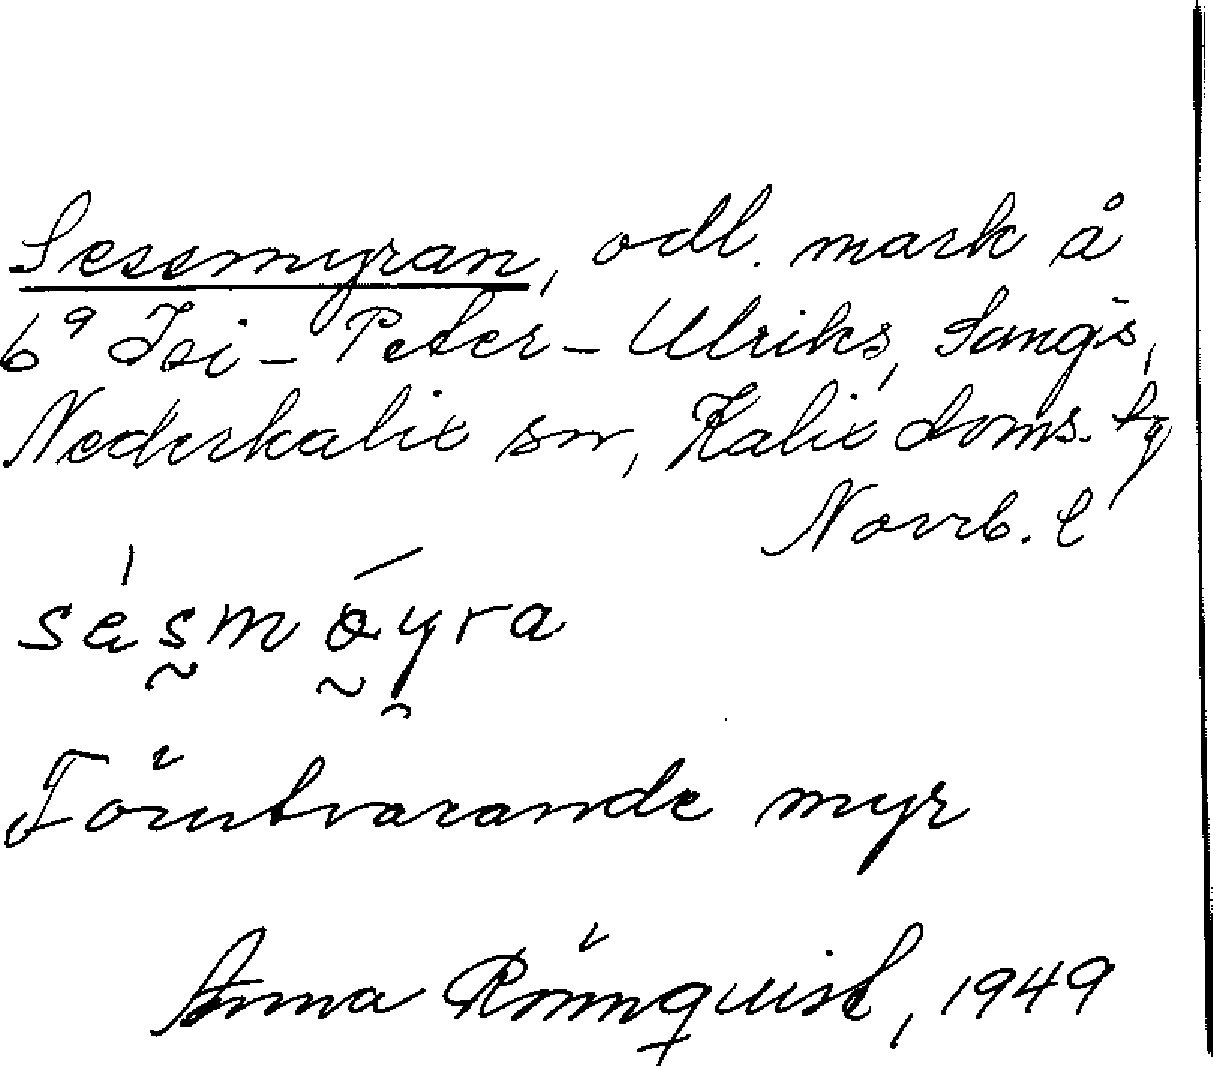 Sesemyran, odl. mark å
6⁹ Isi-Peter-Ulriks, Sangis,
Nederkalix sn, Kalix doms. tg
Norrb. l
sésmöyra
Förutvarande myr
Anna Rönnquist, 1949